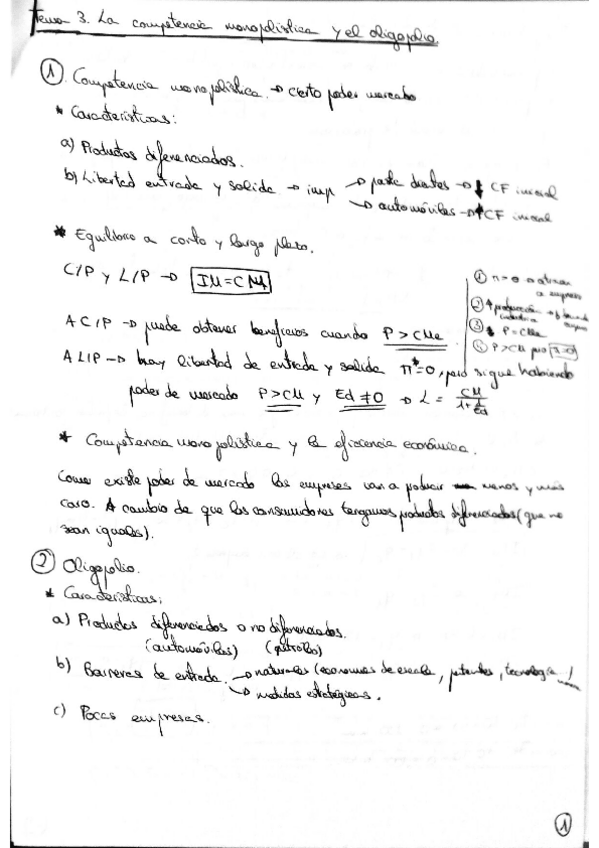 Tema 3. La competencia monopolística y el oligopolio.
① Competencia monopolística → cierto poder mercado
* Características:
a) Productos diferenciados.
b) Libertad entrada y salida → imp → pasta dientes → ↓ CF inicial
→ automóviles → ↑ CF inicial
* Equilibrio a corto y largo plazo.
C/P y L/P → IM = CM
① π > 0 → atraen a empresas
② ↑ producción
③ P = CMe
④ P > CM pero π = 0
A C/P → puede obtener beneficios cuando P > CMe
A L/P → hay libertad de entrada y salida π = 0, pero sigue habiendo
poder de mercado P > CM y Ed ≠ 0 → L =
* Competencia monopolística y la eficiencia económica.
Como existe poder de mercado las empresas van a producir menos y más
caro. A cambio de que los consumidores tengamos productos diferenciados (que no
sean iguales).
② Oligopolio.
* Características:
a) Productos diferenciados o no diferenciados.
(automóviles) (petróleo)
b) Barreras de entrada → naturales (economías de escala, patentes, tecnología
→ medidas estratégicas.
c) Pocas empresas.
1